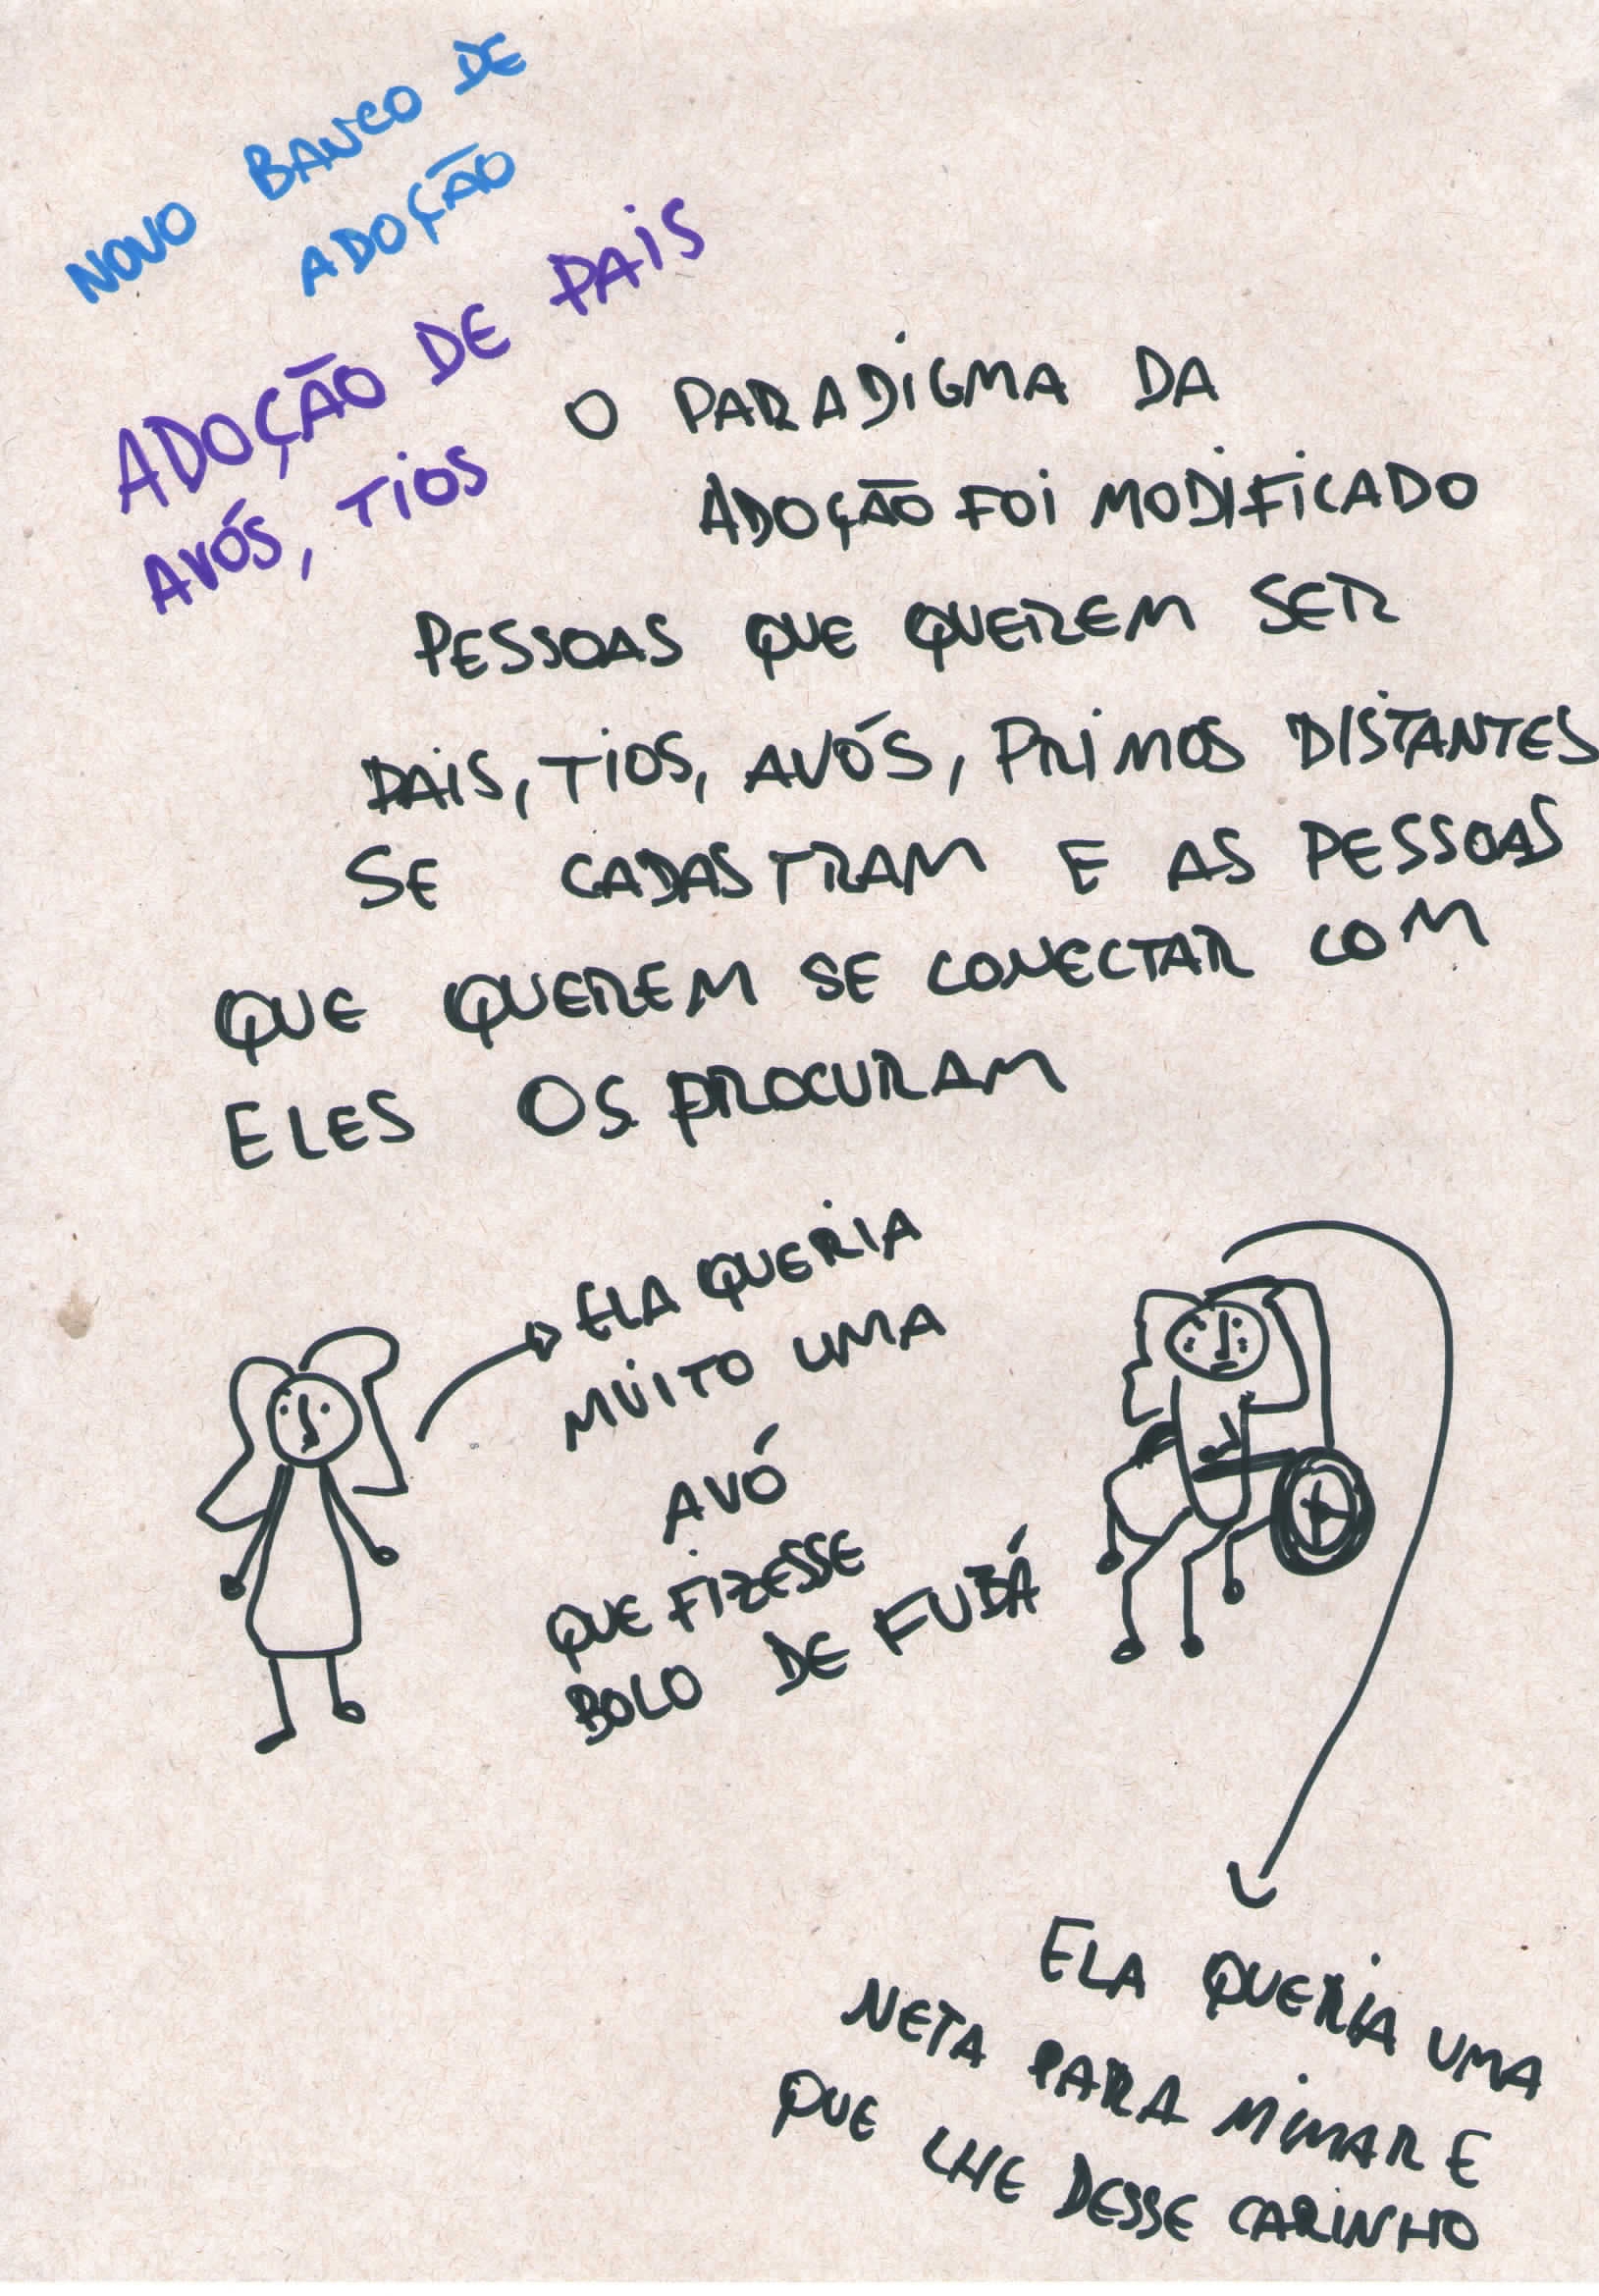 NOVO BANCO DE
ADOÇÃO
ADOÇÃO DE PAIS
AVÓS, TIOS
O PARADIGMA DA
ADOÇÃO FOI MODIFICADO
PESSOAS QUE QUEREM SER
PAIS, TIOS, AVÓS, PRIMOS DISTANTES
SE CADASTRAM E AS PESSOAS
QUE QUEREM SE CONECTAR COM
ELES OS PROCURAM
ELA QUERIA
MUITO UMA
AVÓ
QUE FIZESSE
BOLO DE FUBÁ
ELA QUERIA UMA
NETA PARA MIMAR E
QUE LHE DESSE CARINHO